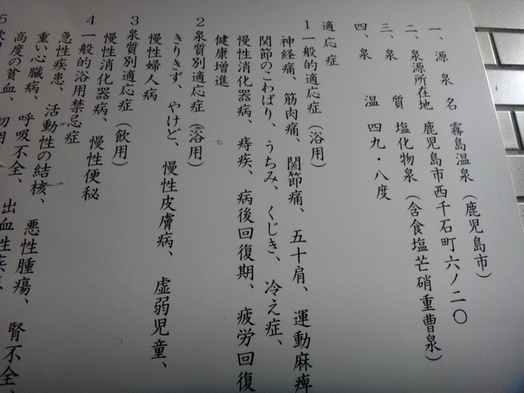 一、源泉名 霧島温泉（鹿児島市）
二、泉源所在地 鹿児島市西千石町六ノ二〇
三、泉質 塩化物泉（含食塩芒硝重曹泉）
四、泉温 四九・八度
適応症
1 一般的適応症（浴用）
神経痛、筋肉痛、関節痛、五十肩、運動麻痺
関節のこわばり、うちみ、くじき、冷え症、
慢性消化器病、痔疾、病後回復期、疲労回復
健康増進
2 泉質別適応症（浴用）
きりきず、やけど、慢性皮膚病、虚弱児童、
慢性婦人病
3 泉質別適応症（飲用）
慢性消化器病、慢性便秘
4 一般的浴用禁忌症
急性疾患、活動性の結核、悪性腫瘍、
重い心臓病、呼吸不全、腎不全、
高度の貧血、出血性疾
5